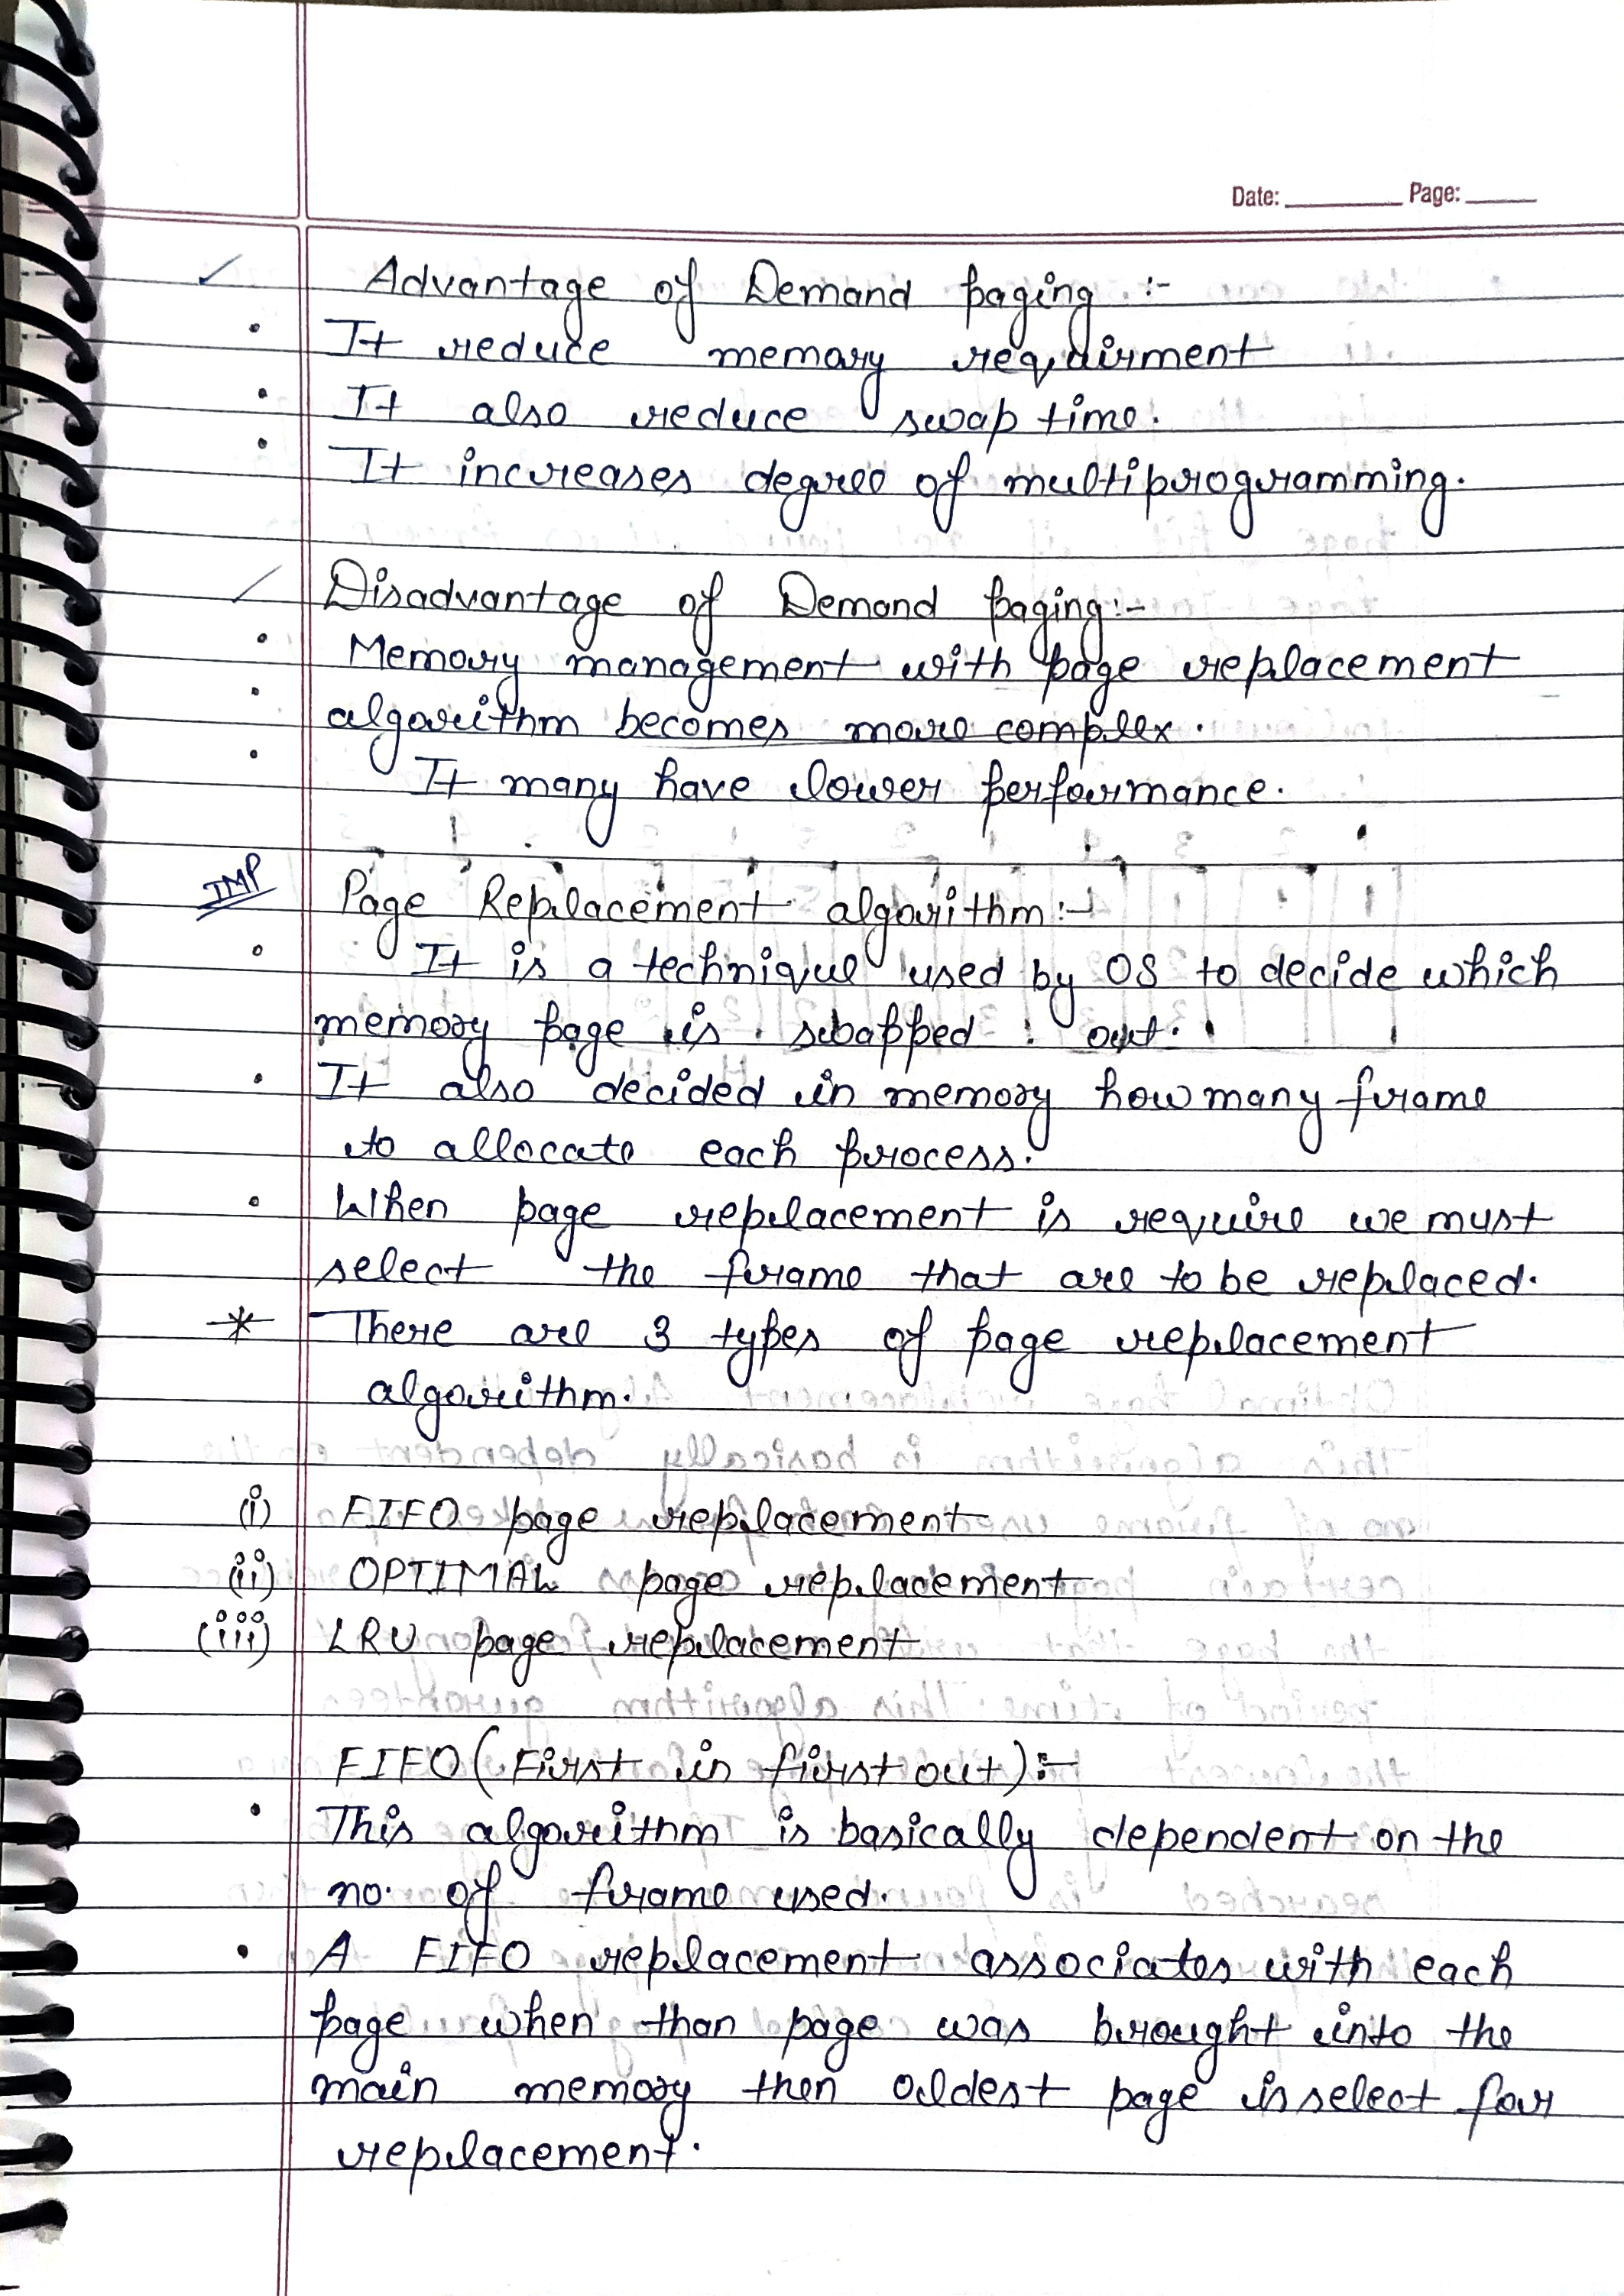 Date: Page:
✓ Advantage of Demand paging :-
• It reduce memary reqairment
• It also reduce swap time.
• It increases degree of multiprogramming.
Disadvantage of Demand paging:-
• Memory management with page replacement
• algorithm becomes more complex.
• It many have lower performance.
IMP Page Replacement algorithm:-
• It is a technique used by OS to decide which
memory page is swapped out.
• It also decided in memory how many frame
to allocate each process.
• When page replacement is require we must
select the frame that are to be replaced.
* There are 3 types of page replacement
algorithm.
(i) FIFO page replacement
(ii) OPTIMAL page replacement
(iii) LRU page replacement
FIFO (First in first out):-
• This algorithm is basically dependent on the
no. of frame used.
• A FIFO replacement associates with each
page when than page was brought into the
main memory then oldest page is select for
replacement.